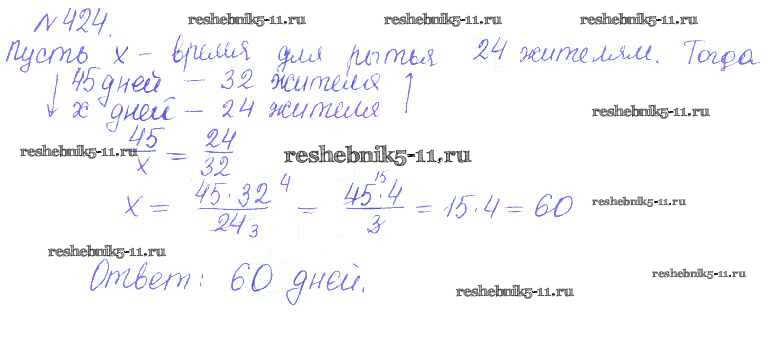 №424. reshebnik5-11.ru reshebnik5-11.ru reshebnik5-11.ru
Пусть x - время для рытья 24 жителям. Тогда
↓ 45 дней - 32 жителя ↑
x дней - 24 жителя reshebnik5-11.ru
reshebnik5-11.ru 45/x = 24/32 reshebnik5-11.ru
x = 45·32 4/24 3 = 45 15·4/3 = 15·4 = 60 reshebnik5-11.ru
reshebnik5-11.ru
Ответ: 60 дней. reshebnik5-11.ru
reshebnik5-11.ru